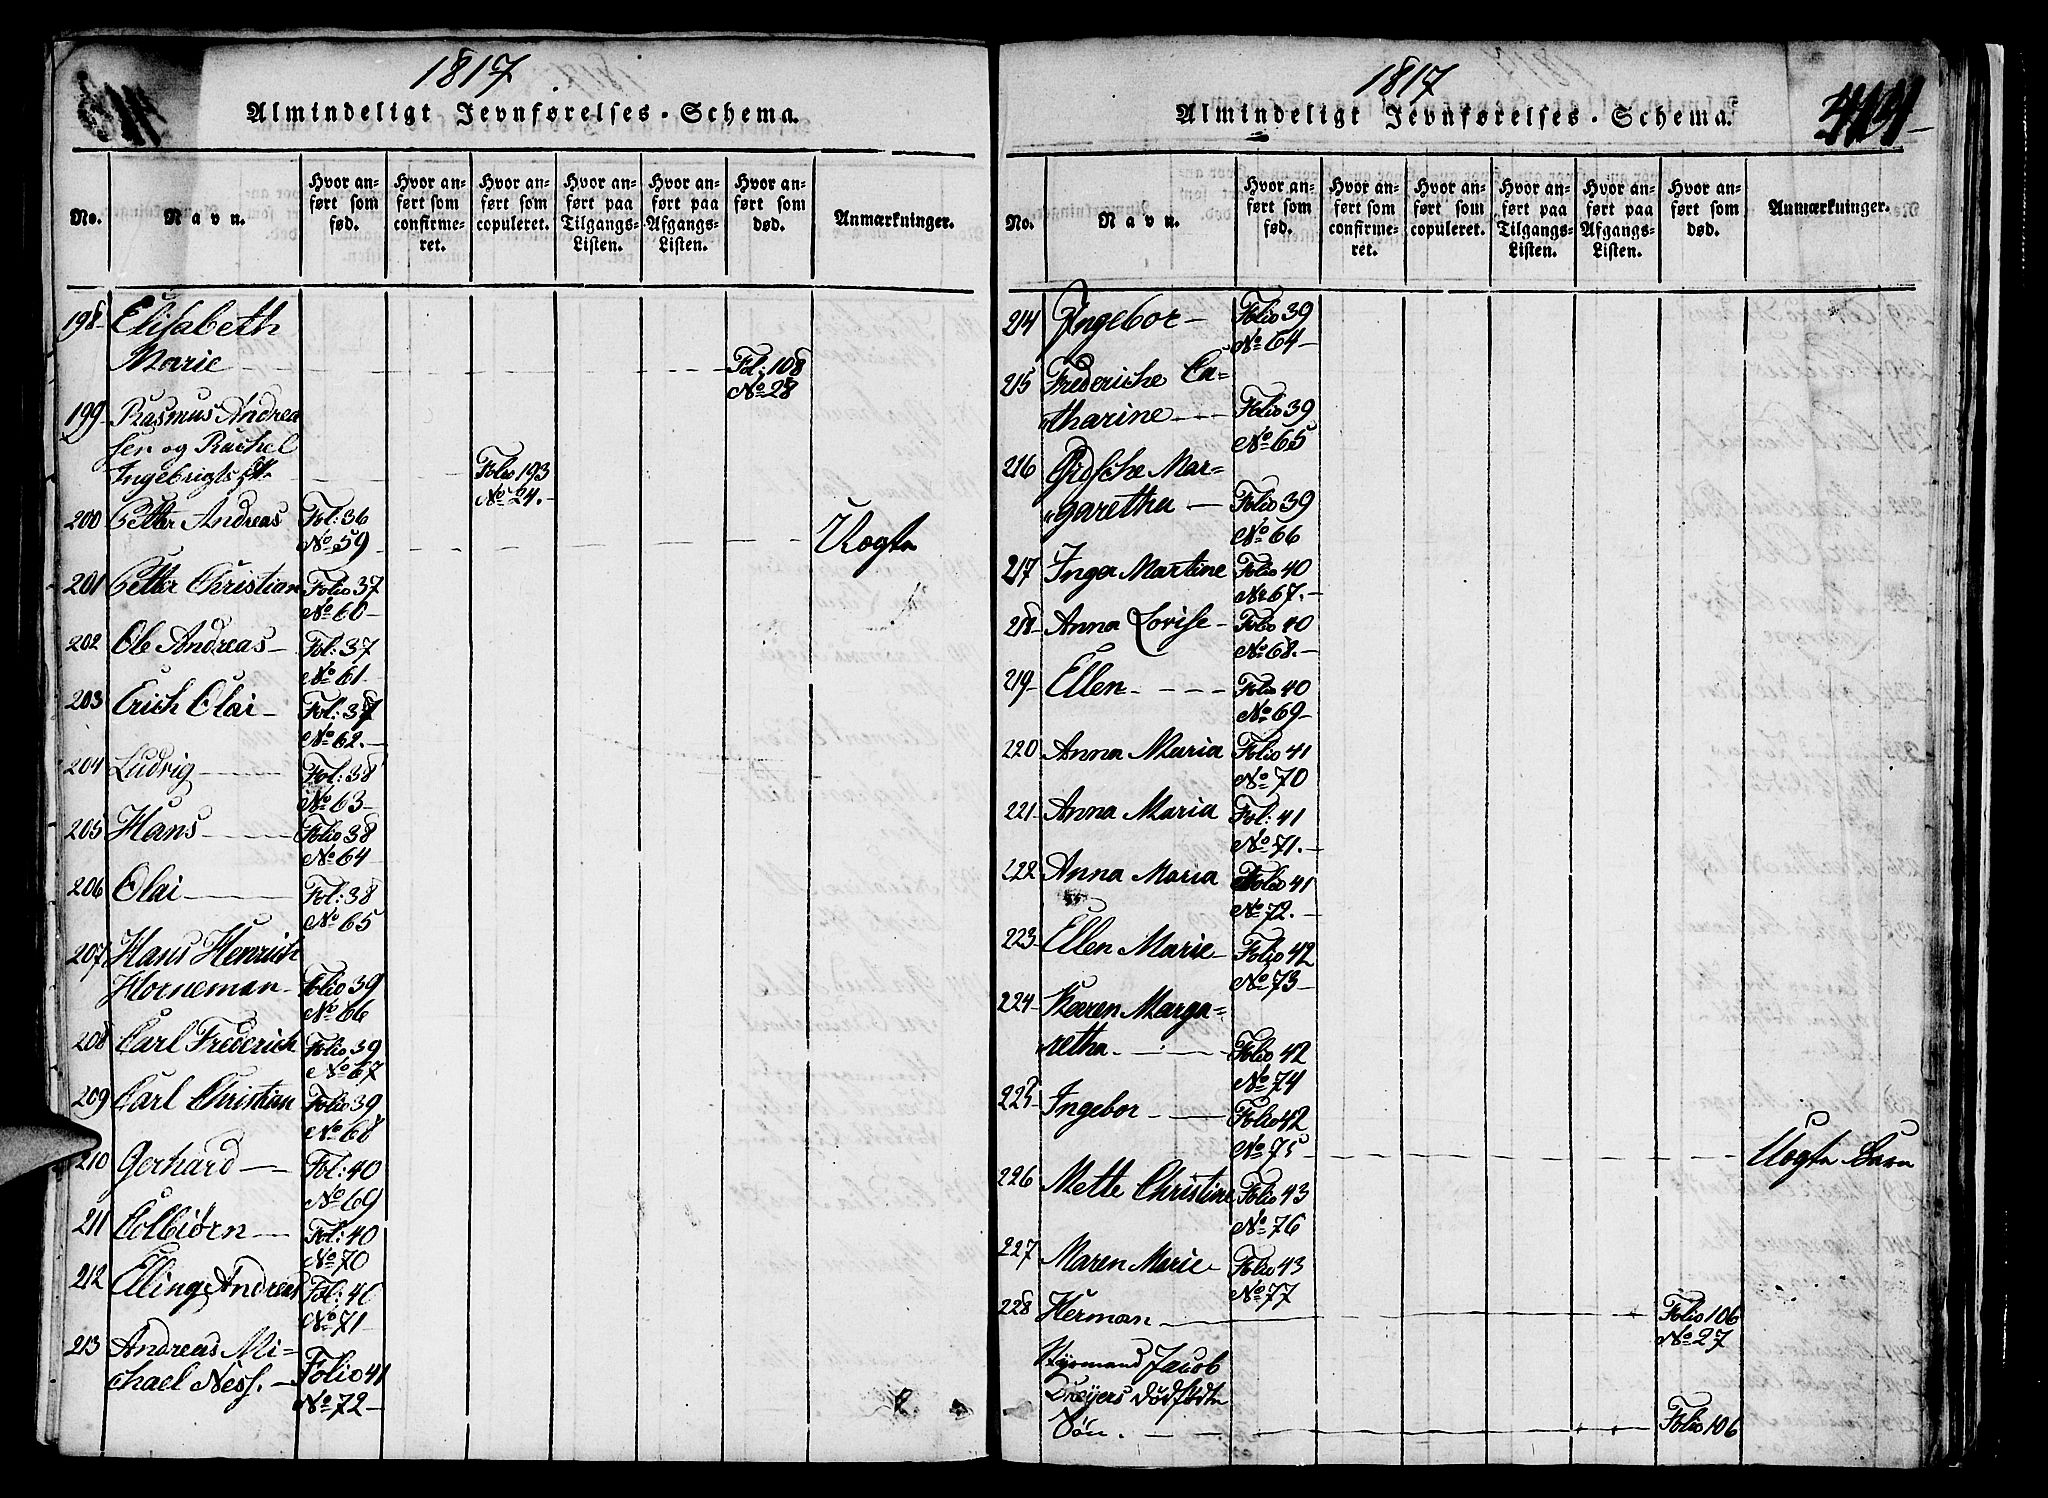 1817
Almindeligt Jevnførelses-Schema.
No.
Navn.
Hvor an-
ført som
fød.
Hvor an-
ført som
confirme-
ret.
Hvor an-
ført som
copuleret.
Hvor an-
ført paa
Tilgangs-
Listen.
Hvor an-
ført paa
Afgangs-
Listen.
Hvor an-
ført som
død.
Anmærkninger.
198 Elisabeth
Marie Fol: 108
No 28
199 Rasmus Andrea
sen og Rachel
Ingebrigts Folio 193
No 24.
200 Petter Andreas Fol: 36
No 59
201 Petter Christian Folio 37
No 60
202 Ole Andreas Fol: 37
No 61
203 Erich Olai Fol: 37
No 62.
204 Ludvig Fol: 38
No 63
205 Hans Folio 38
No 64
206 Olai Fol: 38
No 65
207 Hans Henrich
Horneman Folio 39
No 66
208 Carl Frederich Folio 39
No 67
209 Carl Christian Folio 39
No 68
210 Gerhard Fol: 40
No 69
211 Colbiørn Fol: 40
No 70
212 Elling Andreas Fol: 40
No 71
213 Andreas Mi-
chael Ness. Folio 41
No 72
1817
Almindeligt Jevnførelses-Schema.
414
No.
Navn.
Hvor an-
ført som
fød.
Hvor an-
ført som
confirme-
ret.
Hvor an-
ført som
copuleret.
Hvor an-
ført paa
Tilgangs-
Listen.
Hvor an-
ført paa
Afgangs-
Listen.
Hvor an-
ført som
død.
Anmærkninger.
214 Ingebor Folio 39
No 64
215 Frederiche Ca-
tharine Folio 39
No 65
216 Mar-
garetha Folio 39
No 66
217 Inger Martine Folio 40
No 67.
218 Anna Lovise Folio 40
No 68.
219 Ellen Folio 40
No 69
220 Anna Maria Folio 41
No 70
221 Anna Maria Fol: 41
No 71.
222 Anna Maria Folio 41
No 72.
223 Ellen Marie Folio 42
No 73
224 Karen Marga-
retha Folio 42
No 74
225 Ingebor Folio 42
No 75 Uægte Barn
226 Mette Christine Folio 43
No 76
227 Maren Marie Folio 43
No 77
228 Herman Folio 106
No 27
Styrmand Jacob
Dreyers dødfødte
Søn. Folio 106